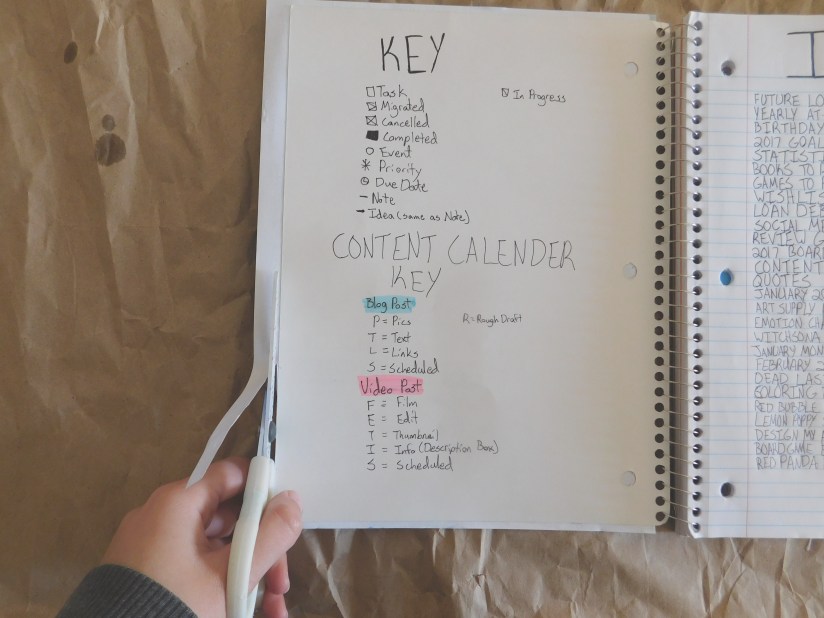 KEY
Task
In Progress
Migrated
Cancelled
Completed
Event
* Priority
Due Date
– Note
– Idea (same as Note)
CONTENT CALENDER
KEY
Blog Post
P = Pics
R = Rough Draft
T = Text
L = Links
S = Scheduled
Video Post
F = Film
E = Edit
T = Thumbnail
I = Info (Description Box)
S = Scheduled
I
FUTURE LO
YEARLY AT
BIRTHDAY
2017 GOAL
STATIST
BOOKS TO
GAMES TO
WISHLIS
LOAN DEB
SOCIAL ME
REVIEW
2017 BOAR
CONTENT
QUOTES
JANUARY 20
ART SUPPLY
EMOTION CHA
WITCHSONA
JANUARY MON
FEBRUARY
DEAD LAS
COLORING
RED BUBBLE
LEMON POPPY
DESIGN MY
BOARD GAME
RED PANDA